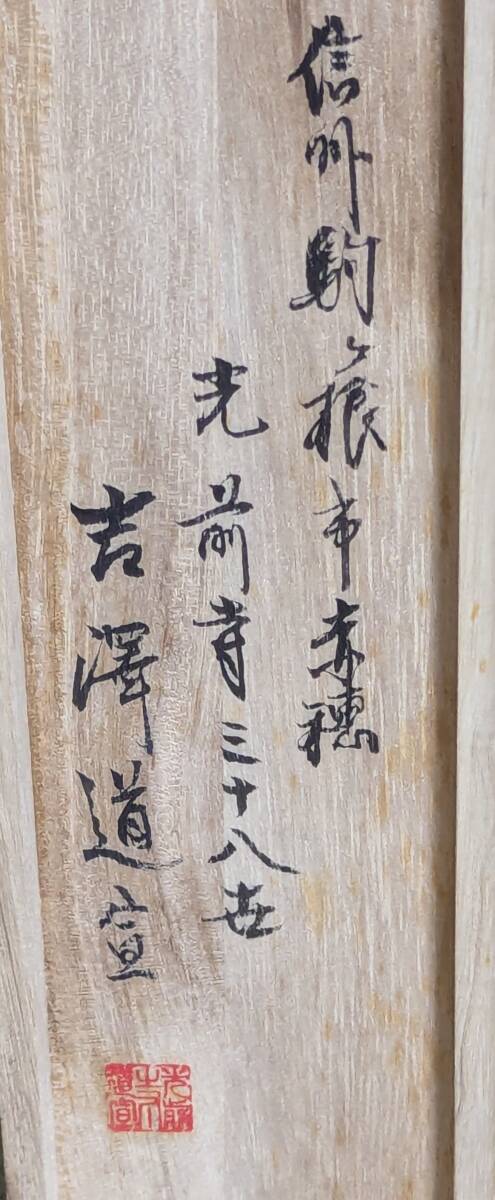 信州駒ヶ根市赤穂
光前寺三十八世
吉澤道宣
光前
道宣